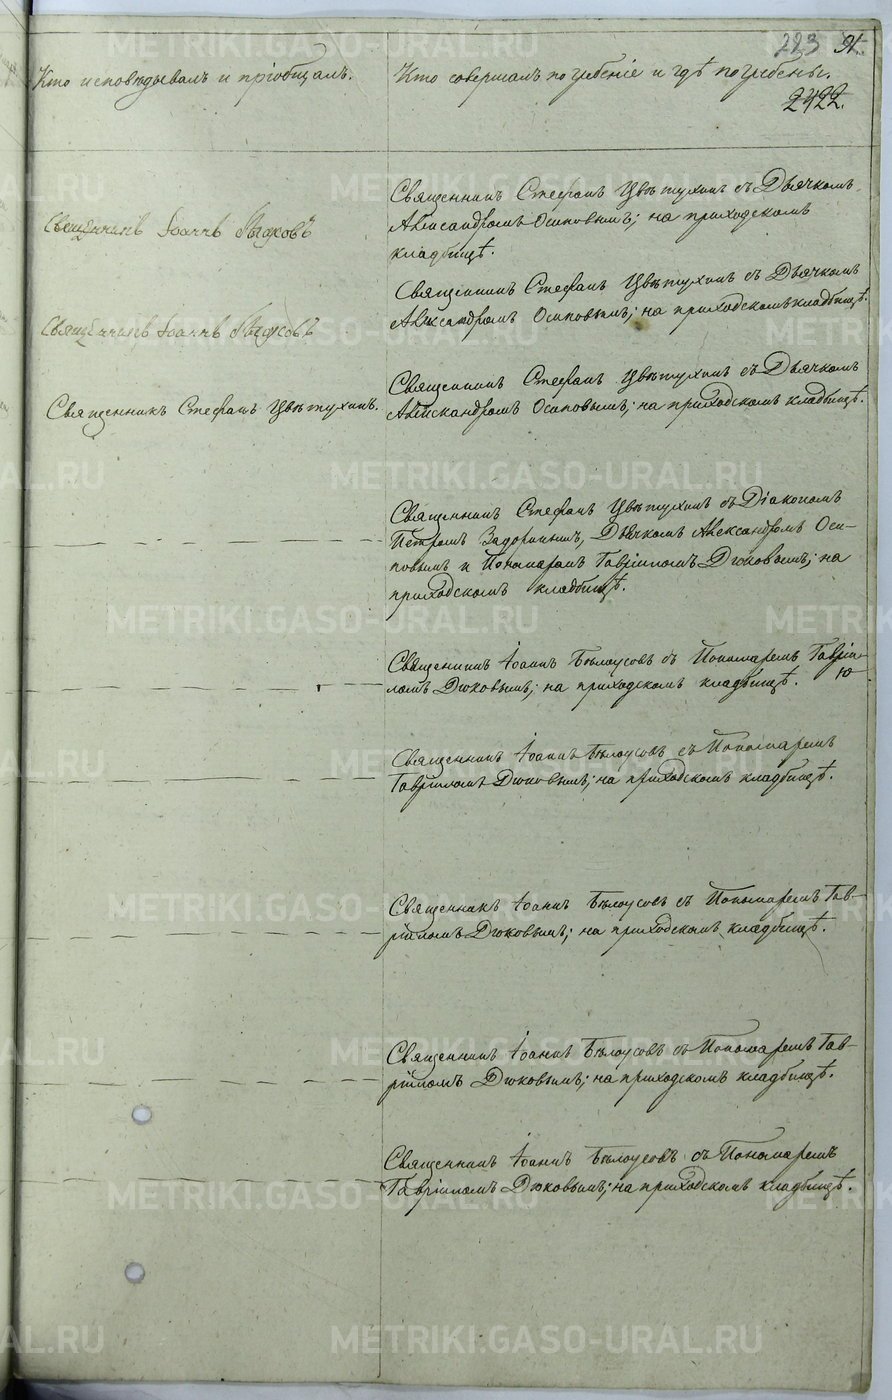 223 91.
Кто исповѣдывалъ и пріобщалъ.
Кто совершалъ погребеніе и гдѣ погребены.
2422.
Священникъ Іоаннъ
Священникъ Стефанъ Цвѣтухинъ съ Дьячкомъ
Александромъ Осиповымъ; на приходскомъ
кладбищѣ.
Священникъ Іоаннъ
Священникъ Стефанъ Цвѣтухинъ съ Дьячкомъ
Александромъ Осиповымъ; на приходскомъ кладбищѣ.
Священникъ Стефанъ Цвѣтухинъ.
Священникъ Стефанъ Цвѣтухинъ съ Дьячкомъ
Александромъ Осиповымъ; на приходскомъ кладбищѣ.
Священникъ Стефанъ Цвѣтухинъ съ Діакономъ
Петромъ Задоринымъ, Дьячкомъ Александромъ Оси-
повымъ и Пономаремъ Гавріиломъ Дюковымъ; на
приходскомъ кладбищѣ.
Священникъ Іоаннъ Бѣлоусовъ съ Пономаремъ Гавріи-
ломъ Дюковымъ; на приходскомъ кладбищѣ. Ю
Священникъ Іоаннъ Бѣлоусовъ съ Пономаремъ
Гавріиломъ Дюковымъ; на приходскомъ кладбищѣ.
Священникъ Іоаннъ Бѣлоусовъ съ Пономаремъ Гав-
ріиломъ Дюковымъ; на приходскомъ кладбищѣ.
Священникъ Іоаннъ Бѣлоусовъ съ Пономаремъ Гав-
ріиломъ Дюковымъ; на приходскомъ кладбищѣ.
Священникъ Іоаннъ Бѣлоусовъ съ Пономаремъ
Гавріиломъ Дюковымъ; на приходскомъ кладбищѣ.
METRIKI.GASO-URAL.RU